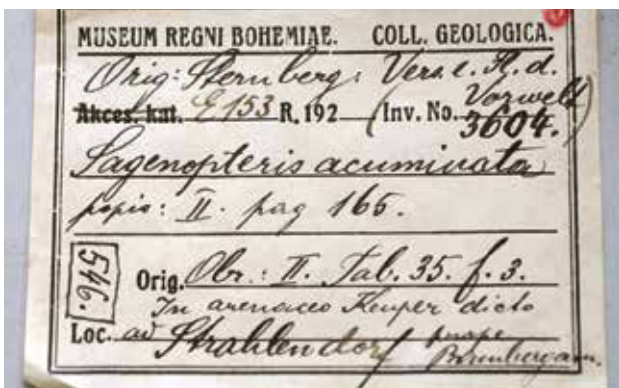 MUSEUM REGNI BOHEMIAE. COLL. GEOLOGICA.
Orig: Sternberg: Vers. e. Fl. d.
Vorwelt)
Akces. kat. E 153 R. 192 (Inv. No. 3604.
Sagenopteris acuminata
popis: II. pag 165.
546.
Orig. Obr.: II. Tab. 35. f. 3.
In arenaceo Keuper dicto
Loc. ad Strahlendorf prope
Bambergam.